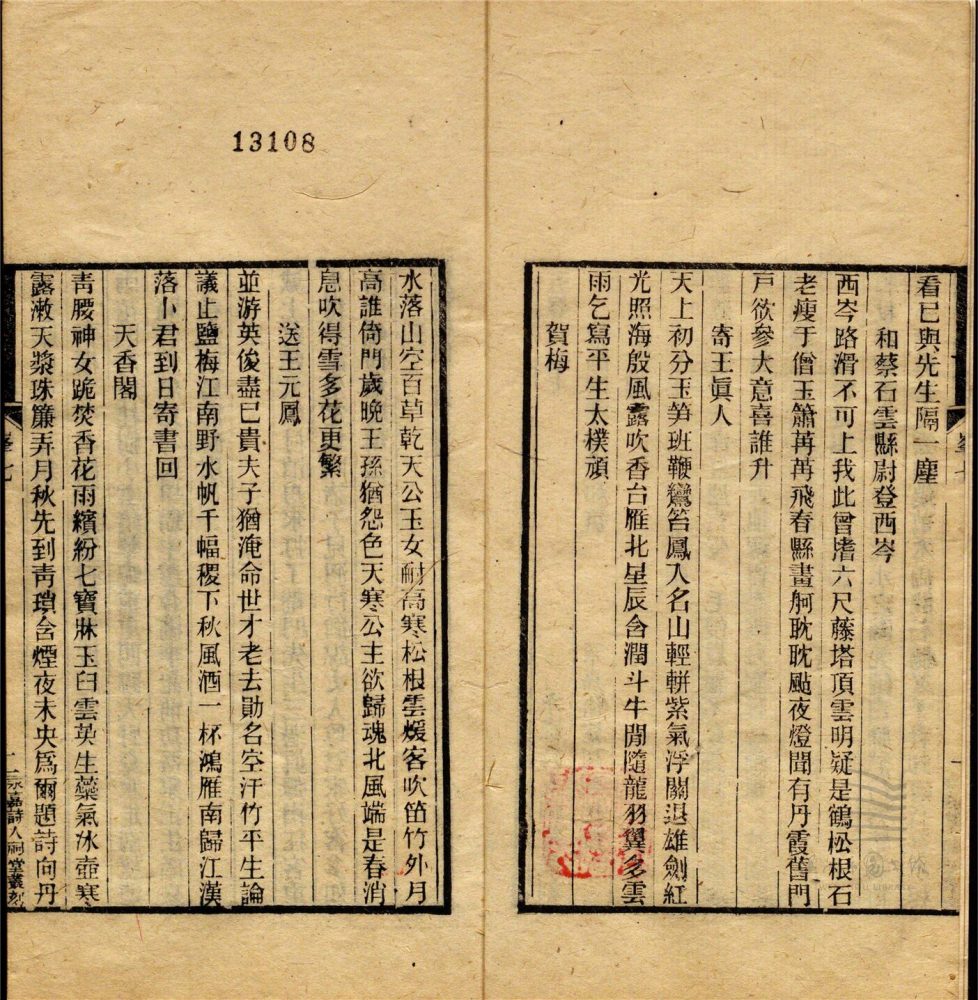 13108
看已與先生隔一塵
和蔡石雲縣尉登西岑
西岑路滑不可上我此曾㩻六尺藤塔頂雲明疑是鶴松根石
老瘦于僧玉簫苒苒飛春縣畫舸耽耽颭夜燈聞有丹霞舊門
戸欲參大意喜誰升
寄王眞人
天上初分玉笋班鞭鸞笞鳳入名山輕軿紫氣浮關退雄劍紅
光照海殷風露吹香台雁北星辰含潤斗牛閒隨龍羽翼多雲
雨乞寫平生太樸頑
賀梅
水落山空百草乾天公玉女耐高寒松根雲煖客吹笛竹外月
高誰倚門歲晚王孫猶怨色天寒公主欲歸魂北風端是春消
息吹得雪多花更繁
送王元鳳
並游英俊盡已貴夫子猶淹命世才老去勛名空汗竹平生論
議止鹽梅江南野水帆千幅稷下秋風酒一杯鴻雁南歸江漢
落卜君到日寄書回
天香閣
靑腰神女跪焚香花雨繽紛七寶牀玉臼雲英生藥氣冰壺寒
露漱天漿珠簾弄月秋先到靑瑣含煙夜未央爲爾題詩向丹
二
永嘉詩人祠堂叢刻